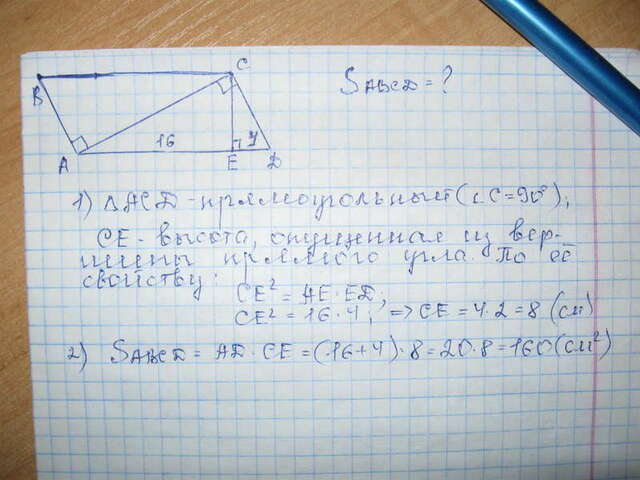 B
C
A
16
E
4
D
S ABCD = ?
1) ΔACD - прямоугольный (∠C = 90°),
CE - высота, опущенная из вер-
шины прямого угла. По её
свойству:
CE² = AE · ED;
CE² = 16 · 4; => CE = 4 · 2 = 8 (см)
2) S ABCD = AD · CE = (16 + 4) · 8 = 20 · 8 = 160 (см²)